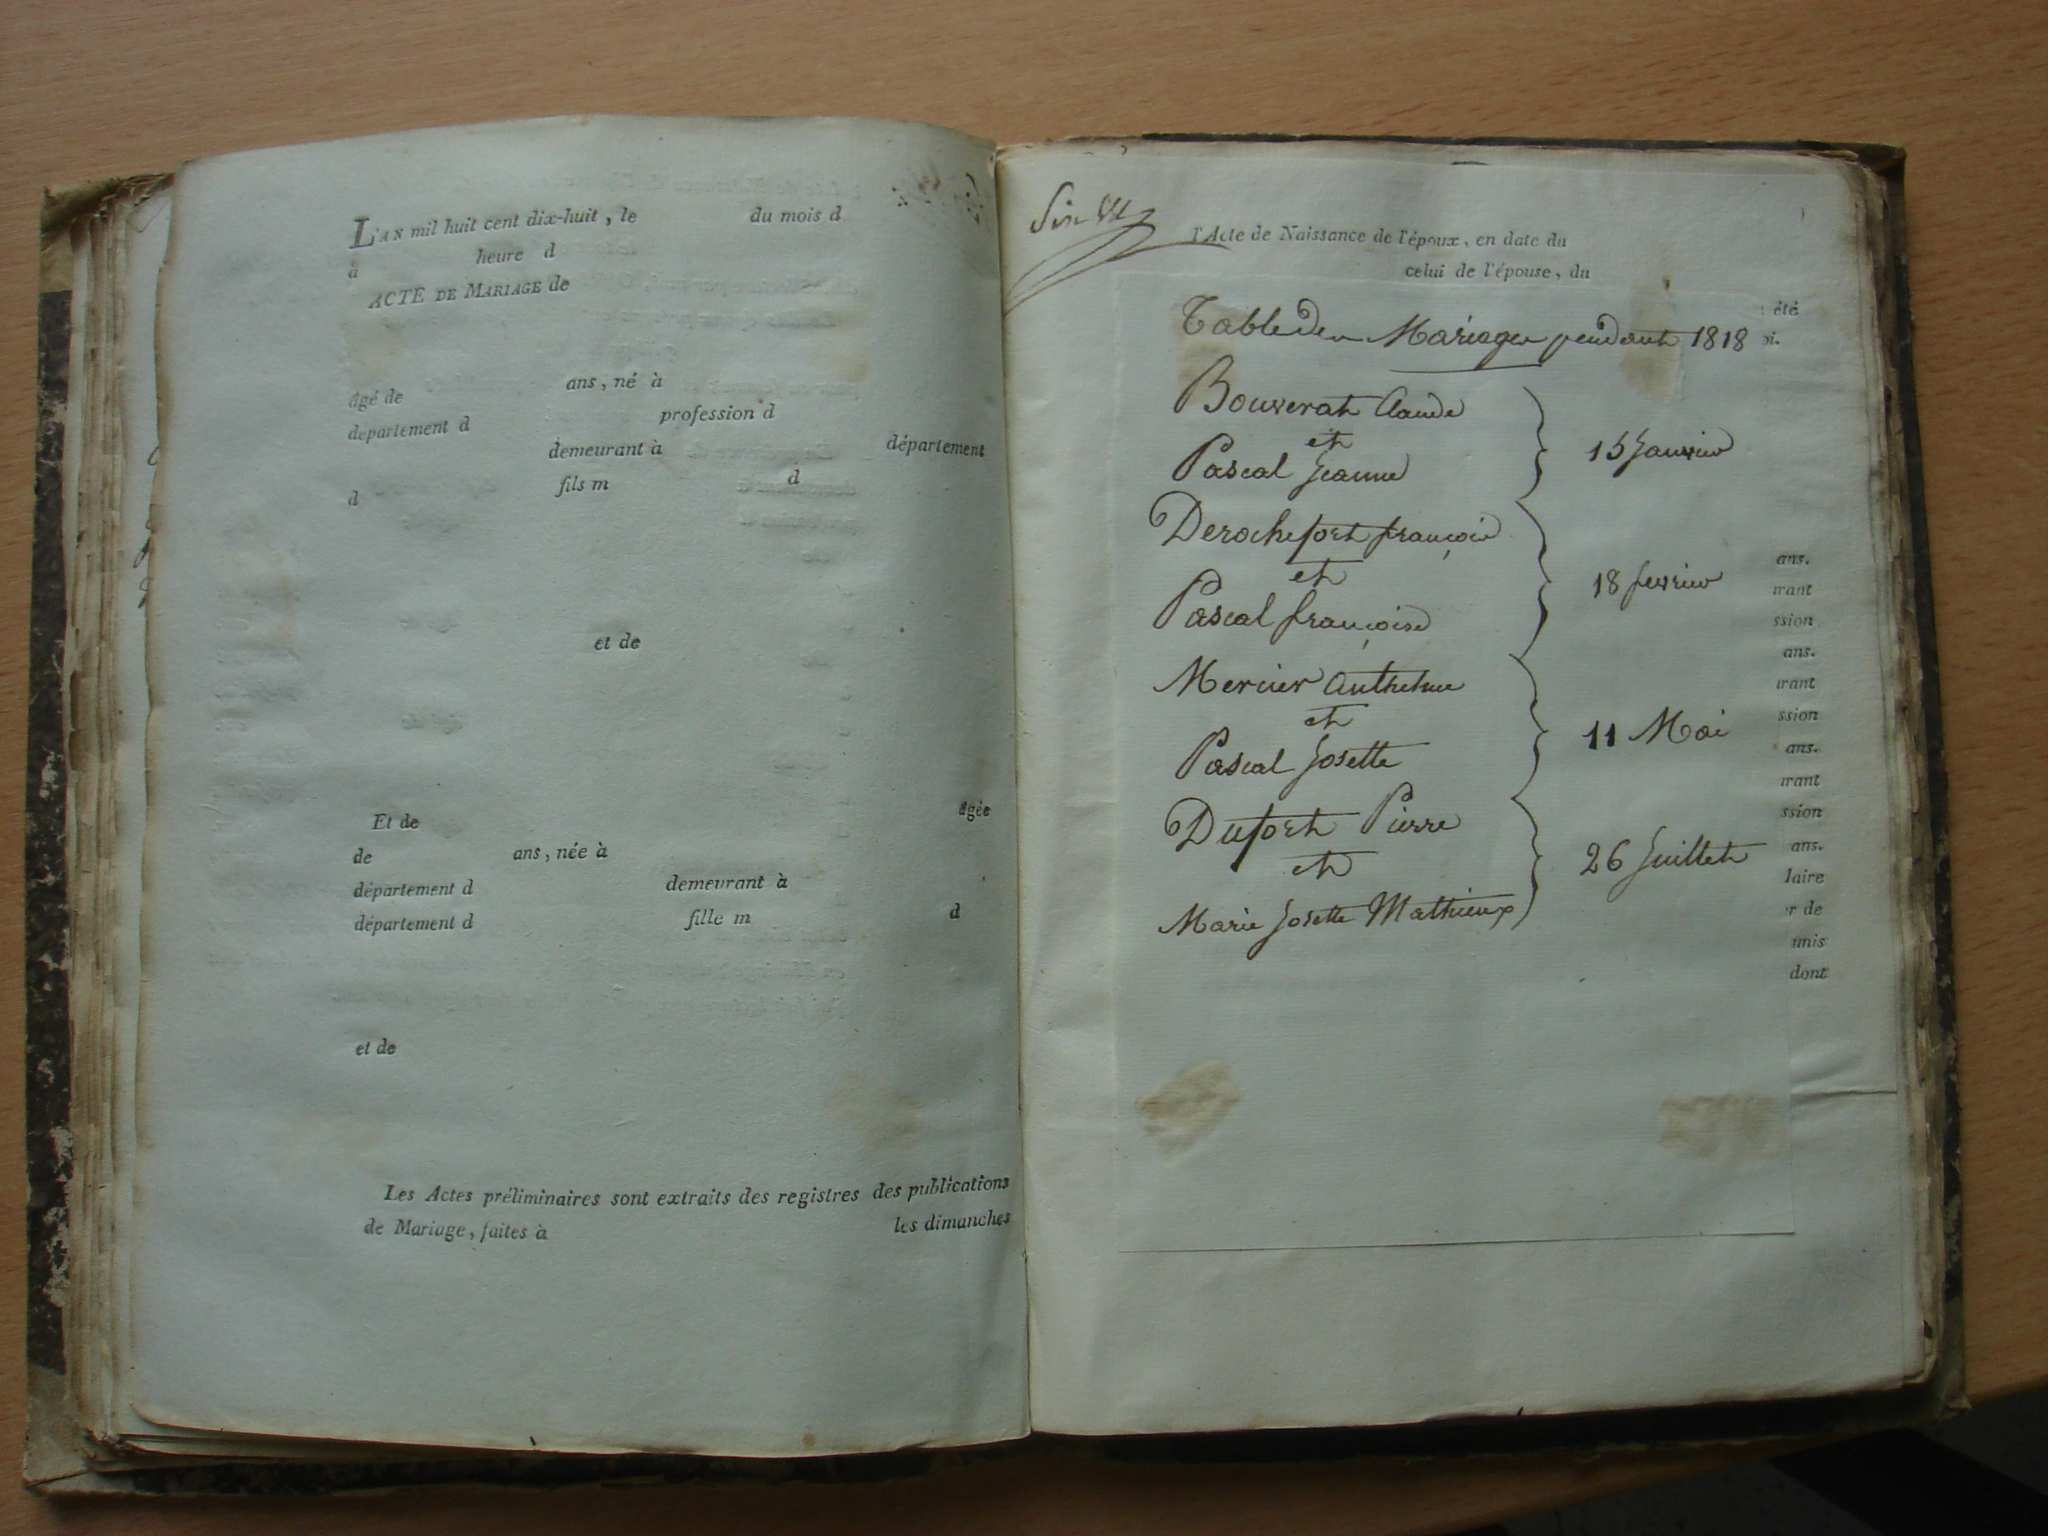 L'AN mil huit cent dix-huit, le du mois d
à heure d
ACTE DE MARIAGE de
âgé de ans, né à
département d profession d
demeurant à département
d fils m d
et de
Et de âgée
de ans, née à
département d demeurant à
département d fille m d
et de
Les Actes préliminaires sont extraits des registres des publications
de Mariage, faites à les dimanches
l'Acte de Naissance de l'époux, en date du
celui de l'épouse, du
été
Table des Mariages pendant 1818
oi.
Bouverat Claude
et
Pascal Jeanne
15 Janvier
Derochefort françois
et
Pascal françoise
18 fevrier
Mercier Anthelme
et
Pascal Josette
11 Mai
Dufort Pierre
et
Marie Josette Mathieux
26 Juillet
ans.
urant
ssion
ans.
urant
ssion
ans.
urant
ssion
ans.
laire
r de
unis
dont